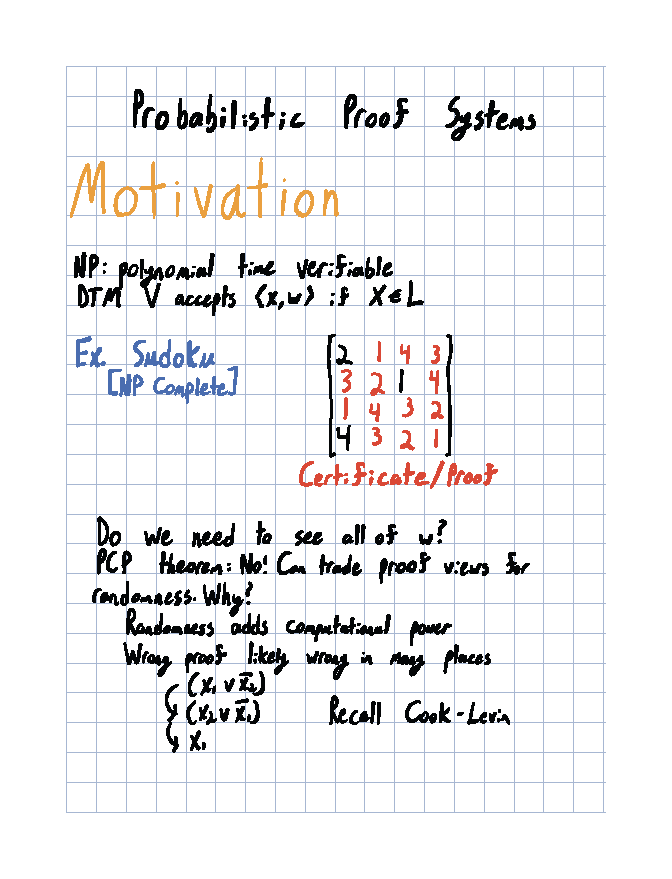 Probabilistic Proof Systems
Motivation
NP: polynomial time verifiable
DTM V accepts ⟨x,w⟩ if X∈L
Ex. Sudoku
[NP Complete]
2 1 4 3
3 2 1 4
1 4 3 2
4 3 2 1
Certificate/Proof
Do we need to see all of w?
PCP theorem: No! Can trade proof views for
randomness. Why?
Randomness adds computational power
Wrong proof likely wrong in many places
(x₁ ∨ x̅₂)
(x₂ ∨ x̅₁) Recall Cook-Levin
x₁